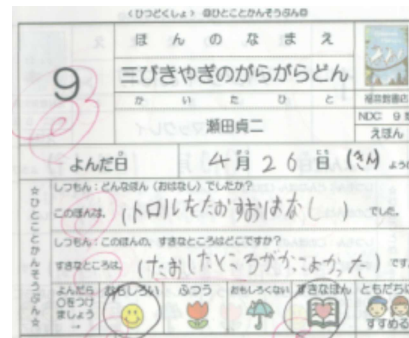 (ひつどくしょ) ◎ひとことかんそうぶん◎
9
ほんのなまえ
三びきやぎのがらがらどん
かいたひと
瀬田貞二
福音館書店
NDC 9
えほん
よんだ日 4月26日(きん)
しつもん:どんなほん(おはなし)でしたか?
このほんは、(トロルをたおすおはなし)でした。
しつもん:このほんの、すきなところはどこですか?
すきなところは、(たおしたところがかこよかった)です
☆ひとことかんそうぶん☆
よんだら
○をつけ
ましょう
→
おもしろい
ふつう
おもしろくない
すきなほん
ともだちに
すすめる